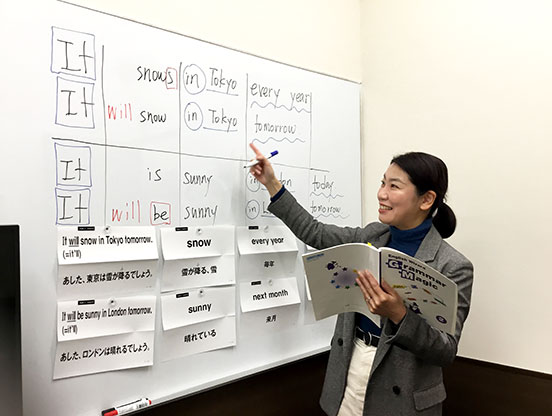 It snows in Tokyo every year
It will snow in Tokyo tomorrow
It is sunny in today
It will be sunny in tomorrow
It will snow in Tokyo tomorrow.
(=it'll)
あした、東京は雪が降るでしょう。
snow
雪が降る、雪
every year
毎年
It will be sunny in London tomorrow.
(=it'll)
あした、ロンドンは晴れるでしょう。
sunny
晴れている
next month
来月
Grammar
Magic